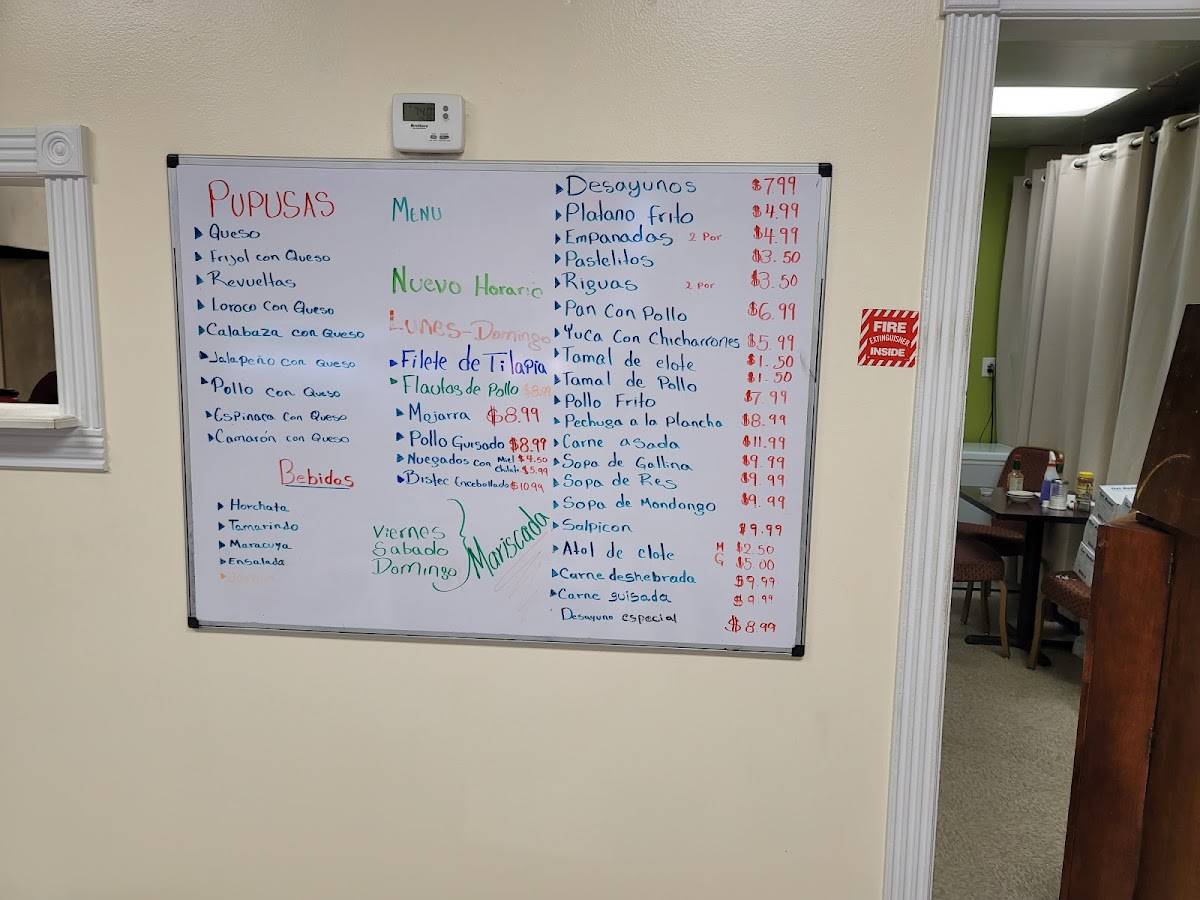 PUPUSAS
Queso
Frijol con Queso
Revueltas
Loroco Con Queso
Calabaza con Queso
Jalapeño con Queso
Pollo con Queso
Espinaca Con Queso
Camarón con Queso
Bebidas
Horchata
Tamarindo
Maracuya
Ensalada
MENU
Nuevo Horario
Lunes-Domingo
Filete de Tilapia
Flautas de Pollo $8.99
Mojarra $8.99
Pollo Guisado $8.99
Nuegados con Miel $4.50
Chilate $5.99
Bistec Encebollado $10.99
Viernes
Sabado
Domingo
Mariscada
Desayunos $7.99
Platano frito $4.99
Empanadas 2 Por $4.99
Pastelitos $3.50
Riguas 2 por $3.50
Pan Con Pollo $6.99
Yuca Con Chicharrones $5.99
Tamal de elote $1.50
Tamal de Pollo $1.50
Pollo Frito $7.99
Pechuga a la plancha $8.99
Carne asada $11.99
Sopa de Gallina $9.99
Sopa de Res $9.99
Sopa de Mondongo $9.99
Salpicon $9.99
Atol de elote M $2.50
G $5.00
Carne deshebrada $9.99
Carne guisada $9.99
Desayuno especial $8.99
FIRE
EXTINGUISHER
INSIDE